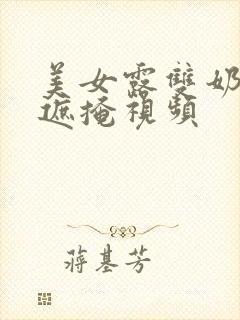 美女露雙奶
遮掩視頻
蔣基芳